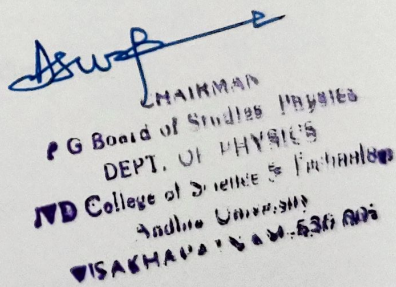 CHAIRMAN
P G Board of Studies Physics
DEPT. OF PHYSICS
JVD College of Science & Technology
Andhra University
VISAKHAPATNAM-530 003